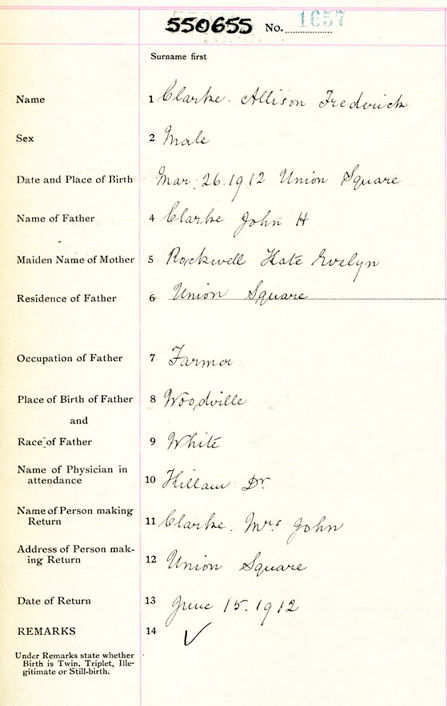 550655 No. 1657
Surname first
Name 1 Clarke. Allison Frederick
Sex 2 Male
Date and Place of Birth Mar. 26. 1912 Union Square
Name of Father 4 Clarke John H
Maiden Name of Mother 5 Rockwell Kate Evelyn
Residence of Father 6 Union Square
Occupation of Father 7 Farmer
Place of Birth of Father 8 Woodville
and
Race of Father 9 White
Name of Physician in
attendance 10 Killam Dr.
Name of Person making
Return 11 Clarke. Mrs John
Address of Person mak-
ing Return 12 Union Square
Date of Return 13 June 15. 1912
REMARKS 14 ✓
Under Remarks state whether
Birth is Twin, Triplet, Ille-
gitimate or Still-birth.